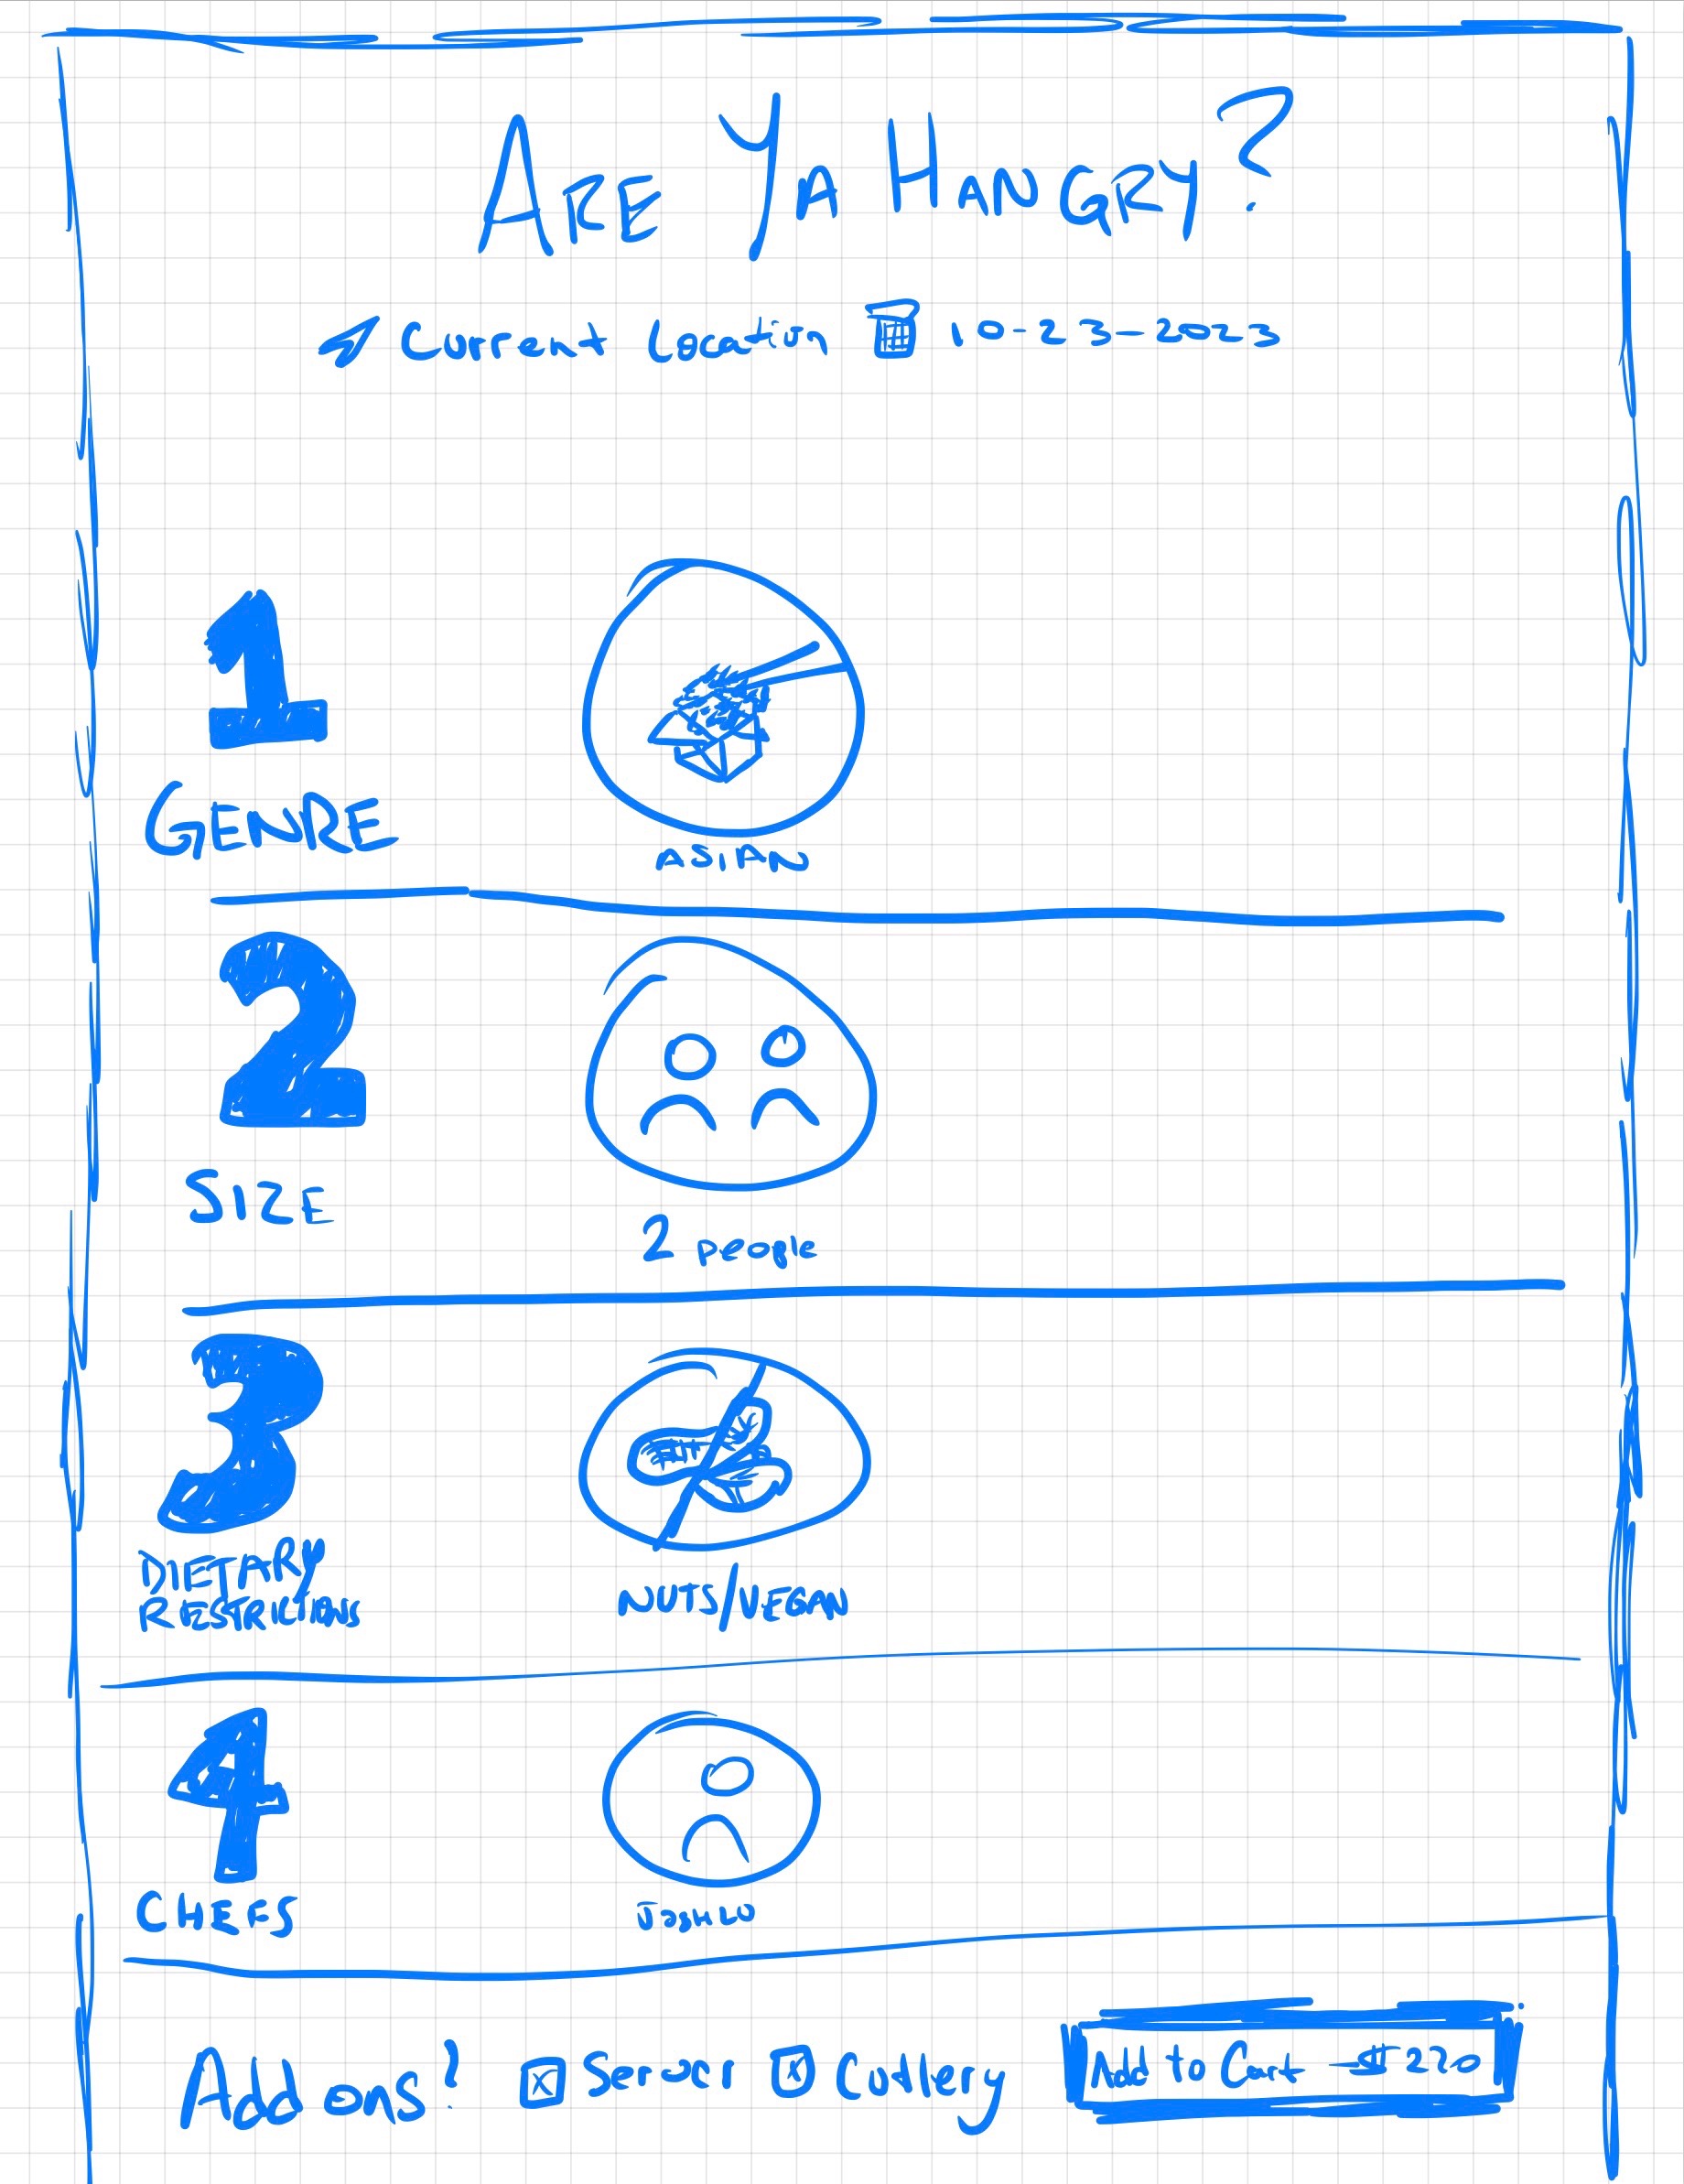 ARE YA HANGRY?
Current Location 10-23-2023
1
GENRE
ASIAN
2
SIZE
2 people
3
DIETARY
RESTRICTIONS
NUTS/VEGAN
4
CHEFS
Add ons? Server Cutlery Add to Cart - $220